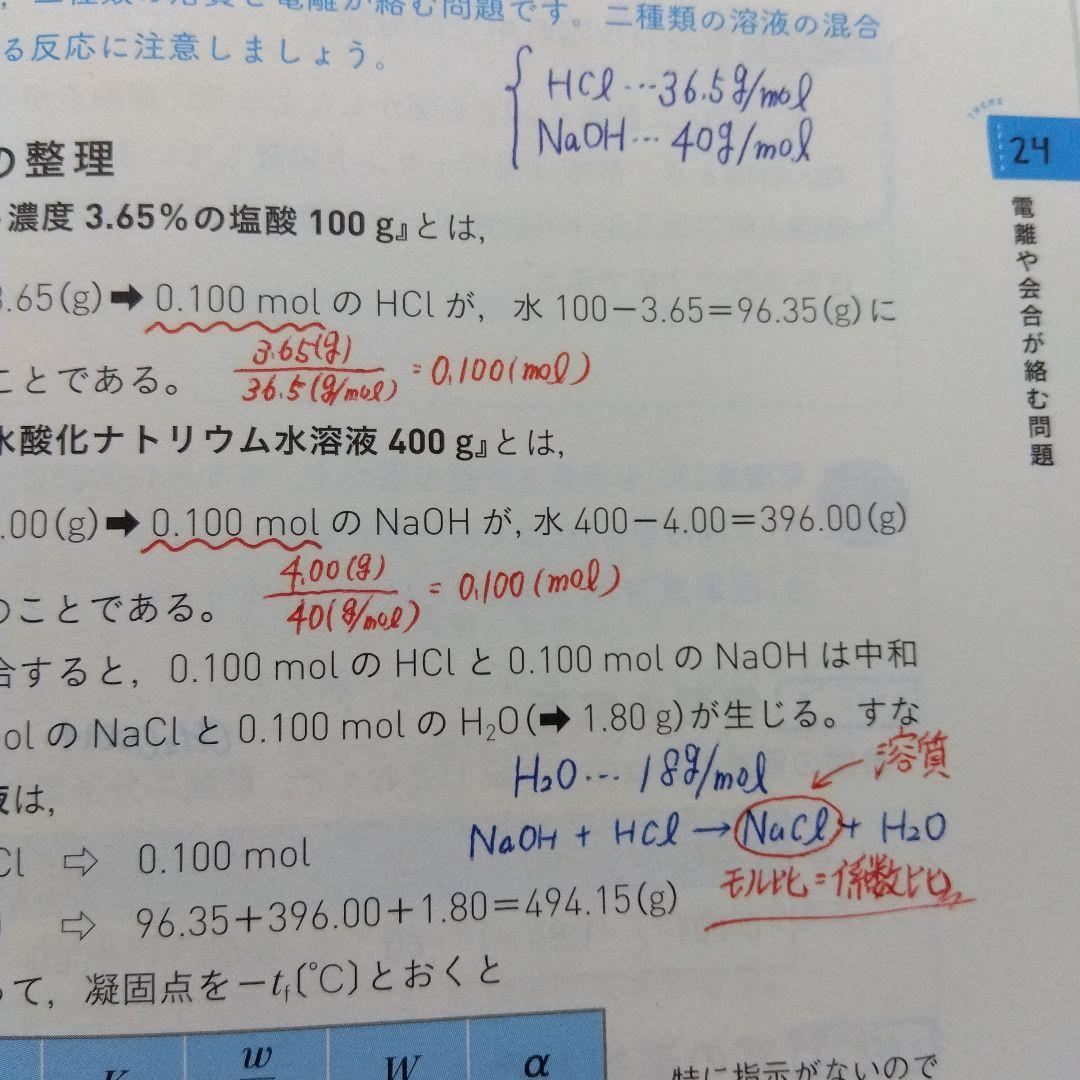 二種類の溶質と電離が絡む問題です。二種類の溶液の混合
る反応に注意しましょう。
HCl…36.5g/mol
NaOH…40g/mol
THEME
24
電離や会合が絡む問題
の整理
濃度 3.65%の塩酸 100 g』とは,
3.65(g)➡0.100 mol の HCl が, 水 100−3.65=96.35(g)に
3.65(g)/36.5(g/mol) = 0.100(mol)
ことである。
水酸化ナトリウム水溶液 400 g』とは,
.00(g)➡0.100 mol の NaOH が, 水 400−4.00=396.00(g)
4.00(g)/40(g/mol) = 0.100(mol)
のことである。
合すると, 0.100 mol の HCl と 0.100 mol の NaOH は中和
ol の NaCl と 0.100 mol の H₂O(➡1.80 g)が生じる。すな
H₂O…18g/mol
溶質
液は,
NaOH + HCl → NaCl + H₂O
Cl ⇨ 0.100 mol
モル比=係数比
⇨ 96.35+396.00+1.80=494.15(g)
って, 凝固点を−tf(℃)とおくと
K w W α
特に指示がないので